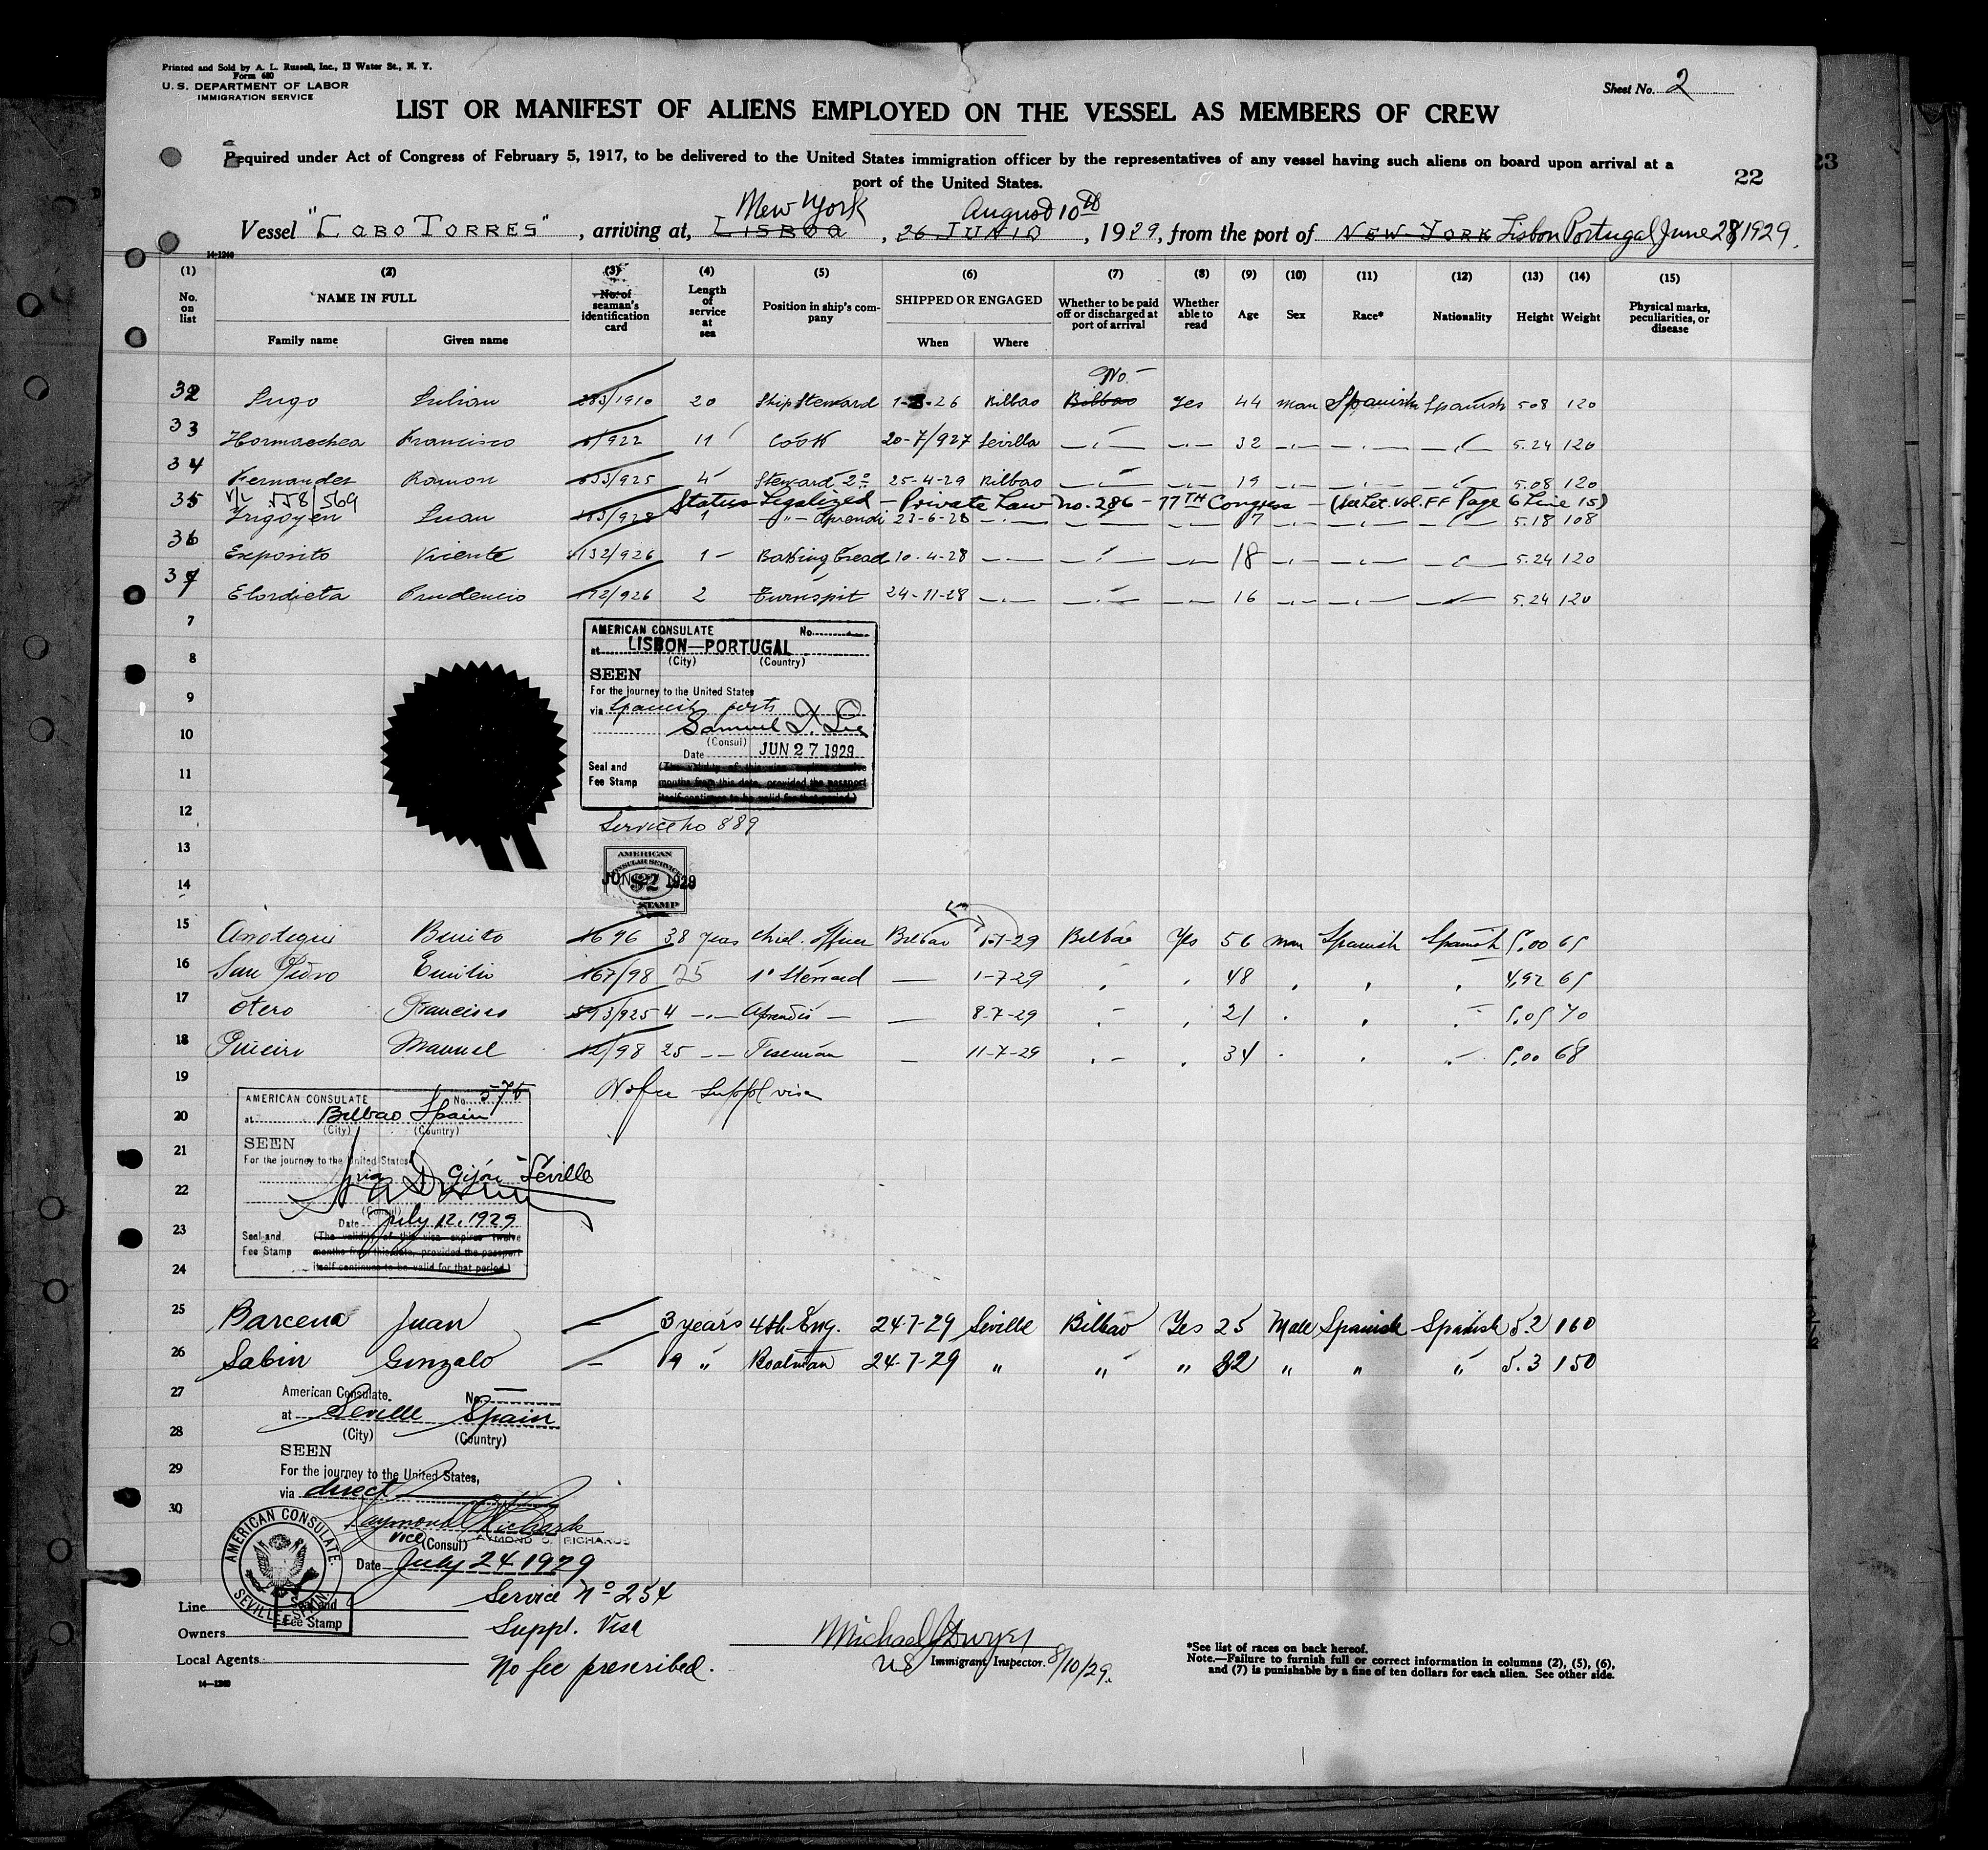 Printed and Sold by A. L. Russell, Inc., 13 Water St., N. Y.
Form 680
U. S. DEPARTMENT OF LABOR
IMMIGRATION SERVICE
Sheet No. 2
LIST OR MANIFEST OF ALIENS EMPLOYED ON THE VESSEL AS MEMBERS OF CREW
Required under Act of Congress of February 5, 1917, to be delivered to the United States immigration officer by the representatives of any vessel having such aliens on board upon arrival at a
port of the United States.
22
23
New York August 10th
Vessel "CABO TORRES", arriving at, LISBOA, 26 JUNIO, 1929, from the port of NEW-YORK Lisbon Portugal June 28, 1929.
14-1240
(1) (2) (3) (4) (5) (6) (7) (8) (9) (10) (11) (12) (13) (14) (15)
No. on list
NAME IN FULL
Family name Given name
No. of seaman's identification card
Length of service at sea
Position in ship's company
SHIPPED OR ENGAGED
When Where
Whether to be paid off or discharged at port of arrival
Whether able to read
Age
Sex
Race*
Nationality
Height
Weight
Physical marks, peculiarities, or disease
No -
32 Lugo Julian 283/1910 20 Ship Steward 26 Bilbao Bilbao Yes 44 man Spanish Spanish 5.08 120
33 Hormaechea Francisco /922 11 Cook 20-7/927 Sevilla 32 5.24 120
34 Fernandez Ramon /925 4 Steward 2º 25-4-29 Bilbao 19 5.08 120
V/L 558/569 Status Legalized - Private Law No. 286 - 77TH Congress - (See Let. Vol. FF Page 6 Line 15)
35 Irigoyen Juan /928 1 -"- Aprendi 23-6-28 17 5.18 108
36 Exposito Vicente 132/926 1 - Baking bread 10-4-28 18 5.24 120
37 Elordieta Prudencio 172/926 2 Turnspit 24-11-28 16 5.24 120
7
AMERICAN CONSULATE No.
at LISBON—PORTUGAL
(City) (Country)
8
SEEN
For the journey to the United States
9
via Spanish ports
Samuel T. Lee
10
(Consul)
Date JUN 27 1929
11
Seal and Fee Stamp
(The validity of this visa expires twelve months from this date, provided the passport itself continues to be valid for that period.)
12
Service No 889
13
AMERICAN CONSULAR SERVICE
JUN 27 1929
$2
STAMP
14
15 Arrotegui Benito 1696 38 years Chief. Officer Bilbao 1-7-29 Bilbao Yes 56 man Spanish Spanish 5,00 65
16 San Pedro Emilio 167/98 25 1º Steward — 1-7-29 48 4,92 65
17 Otero Francisco 593/925 4 Aprendis — 8-7-29 21 5,05 70
18 Piñeiro Manuel 12/98 25 Fireman — 11-7-29 34 5,00 68
19
No fee Suppl visa
AMERICAN CONSULATE No. 576
20
at Bilbao Spain
(City) (Country)
21
SEEN
For the journey to the United States
via Gijon - Seville
22
(Consul)
23
Date July 12, 1929
Seal and Fee Stamp
(The validity of this visa expires twelve months from this date, provided the passport itself continues to be valid for that period.)
24
25 Barcena Juan — 3 years 4th Eng. 24-7-29 Seville Bilbao Yes 25 Male Spanish Spanish 5.2 160
26 Sabin Gonzalo — 19 " Boatman 24-7-29 " " " 32 " " " 5.3 150
27
American Consulate. No. —
at Seville Spain
28
(City) (Country)
SEEN
29
For the journey to the United States,
via direct
30
Vice (Consul) RAYMOND O. RICHARDS
AMERICAN CONSULATE. SEVILLE, SPAIN.
Date July 24 1929
Seal and Fee Stamp
Service Nº 254
Suppl. Visa
No fee prescribed.
Line
Owners
Local Agents
14—1240
Michael J Dwyer
US Immigrant Inspector. 8/10/29.
*See list of races on back hereof.
Note.—Failure to furnish full or correct information in columns (2), (5), (6),
and (7) is punishable by a fine of ten dollars for each alien. See other side.